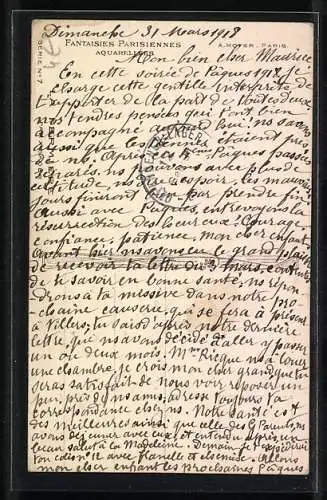 Dimanche 31 Mars 1918
FANTAISIES PARISIENNES
AQUARELLES
A. NOYER, PARIS.
SERIE N° 7
Mon bien cher Maurice
En cette soirée de Pâques 1918, je
charge cette gentille interprète de
t'apporter de la part de toutes deux
nos tendres pensées qui t'ont bien
accompagné aujourd'hui. Ns savons
aussi que les tiennes étaient près
de ns. Après ce 4ème Pâques passés
séparés, ns pouvons avec plus de
certitude, ns espoir, les mauvais
jours finiront par prendre fin
Aussi avec Pâques, entrevoyons la
résurrection des jours heureux. Courage
confiance, patience, mon cher enfant
Avant hier ns avons eu le grand plaisir
de recevoir ta lettre du 3 mars, contentes
de te savoir en bonne santé, ns répon
drons à ta missive dans notre pro
chaine causerie, qui se fera à présent
à Villers, tu sais d'après notre dernière
lettre, que ns avons décidé d'aller y passer
un ou deux mois. Mme Ricque ns a loué
une chambre, je crois mon cher grand que tu
seras satisfait de nous voir reposer un
peu, près de ns amis, adresse toujours ta
correspondance chez ns. Notre santé est
des meilleures ainsi que celle des G. Parents, ns
avons dîné avec eux et entendu après, un
beau salut à la Madeleine. Demain je t'expédierai
un colis avec flanelle et chemise. Allons
mon cher enfant les prochaines Pâques